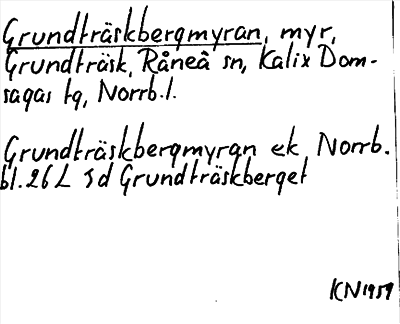 Grundträskbergmyran, myr,
Grundträsk, Råneå sn, Kalix Dom-
sagas tg, Norrb.l.
Grundträskbergmyran ek Norrb.
bl. 26 L Sd Grundträskberget
KN 1959